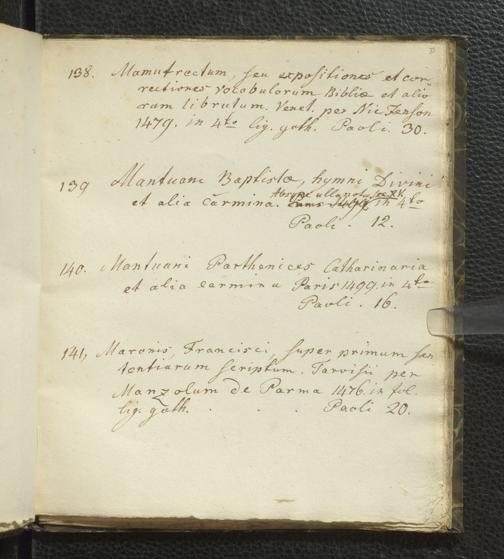 138. Mamutrectum, seu expositiones et cor-
rectiones vocabulorum Bibliæ et alio
rum librutum. Venet. per Nic Jenson
1479. in 4to lig. goth. Paoli. 30.
139 Mantuani Baptistæ, hymni Divini
Absque ulla not. sec XV.
et alia carmina. in 4to
Paoli. 12.
140. Mantuani Parthenices Catharinaria
et alia carmina Paris 1499. in 4to
Paoli. 16.
141, Maronis, Francisci, super primum sen
tentiarum scriptum. Tarvisii per
Manzolum de Parma 1476. in fol.
lig. goth. . . . Paoli 20.